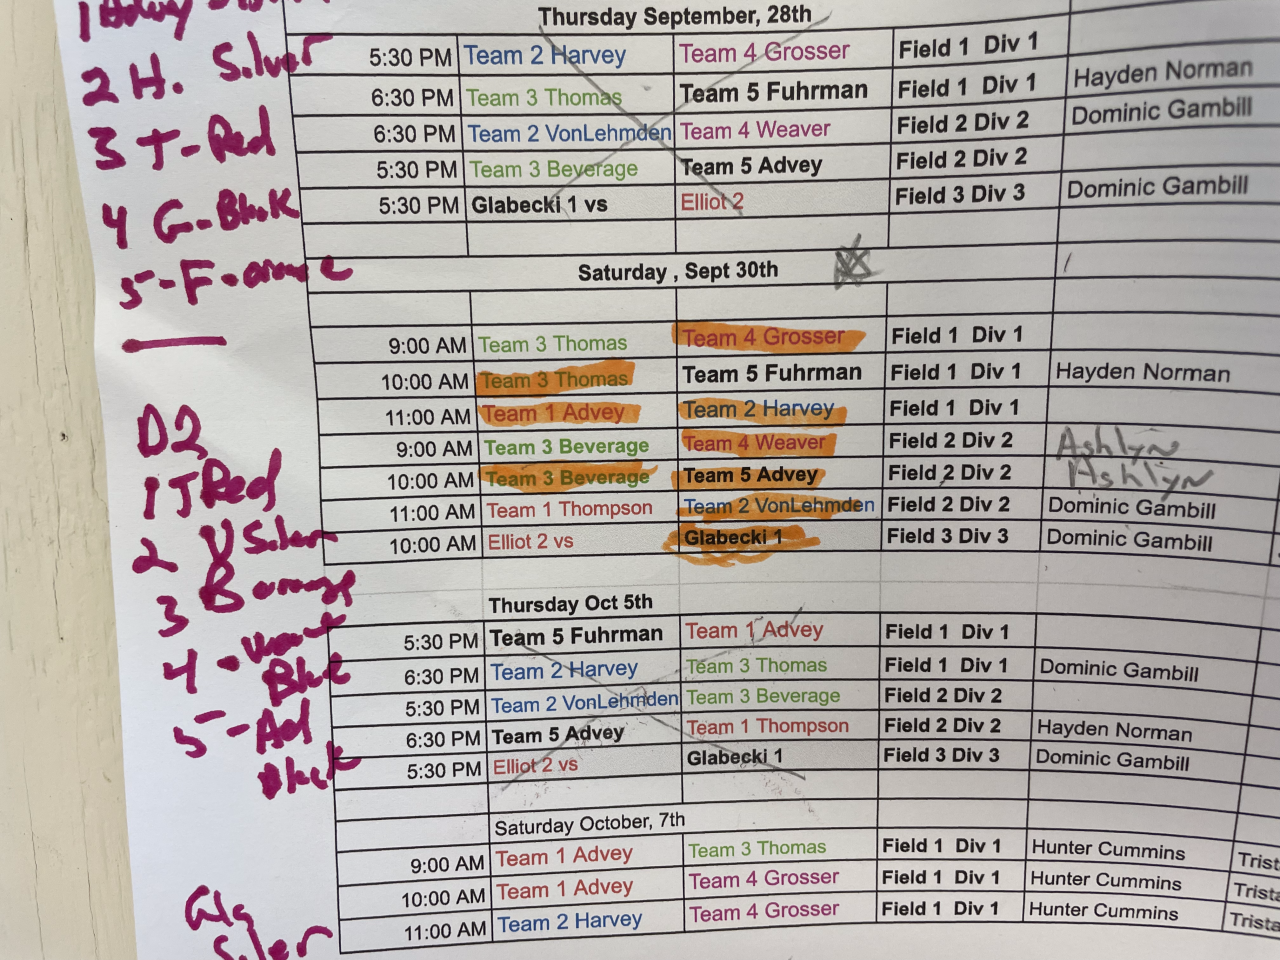 Thursday September, 28th
5:30 PM Team 2 Harvey Team 4 Grosser Field 1 Div 1
6:30 PM Team 3 Thomas Team 5 Fuhrman Field 1 Div 1 Hayden Norman
6:30 PM Team 2 VonLehmden Team 4 Weaver Field 2 Div 2 Dominic Gambill
5:30 PM Team 3 Beverage Team 5 Advey Field 2 Div 2
5:30 PM Glabecki 1 vs Elliot 2 Field 3 Div 3 Dominic Gambill
Saturday , Sept 30th
9:00 AM Team 3 Thomas Team 4 Grosser Field 1 Div 1
10:00 AM Team 3 Thomas Team 5 Fuhrman Field 1 Div 1 Hayden Norman
11:00 AM Team 1 Advey Team 2 Harvey Field 1 Div 1
9:00 AM Team 3 Beverage Team 4 Weaver Field 2 Div 2 Ashlyn
10:00 AM Team 3 Beverage Team 5 Advey Field 2 Div 2 Ashlyn
11:00 AM Team 1 Thompson Team 2 VonLehmden Field 2 Div 2 Dominic Gambill
10:00 AM Elliot 2 vs Glabecki 1 Field 3 Div 3 Dominic Gambill
Thursday Oct 5th
5:30 PM Team 5 Fuhrman Team 1 Advey Field 1 Div 1
6:30 PM Team 2 Harvey Team 3 Thomas Field 1 Div 1 Dominic Gambill
5:30 PM Team 2 VonLehmden Team 3 Beverage Field 2 Div 2
6:30 PM Team 5 Advey Team 1 Thompson Field 2 Div 2 Hayden Norman
5:30 PM Elliot 2 vs Glabecki 1 Field 3 Div 3 Dominic Gambill
Saturday October, 7th
9:00 AM Team 1 Advey Team 3 Thomas Field 1 Div 1 Hunter Cummins Trista
10:00 AM Team 1 Advey Team 4 Grosser Field 1 Div 1 Hunter Cummins Trista
11:00 AM Team 2 Harvey Team 4 Grosser Field 1 Div 1 Hunter Cummins Trista
2 H. Silver
3 T-Red
4 G-Black
5-F-orange
D2
1 T Red
2 V Silver
3 B orange
4 -
5-Ad
Black
Gla
Silver